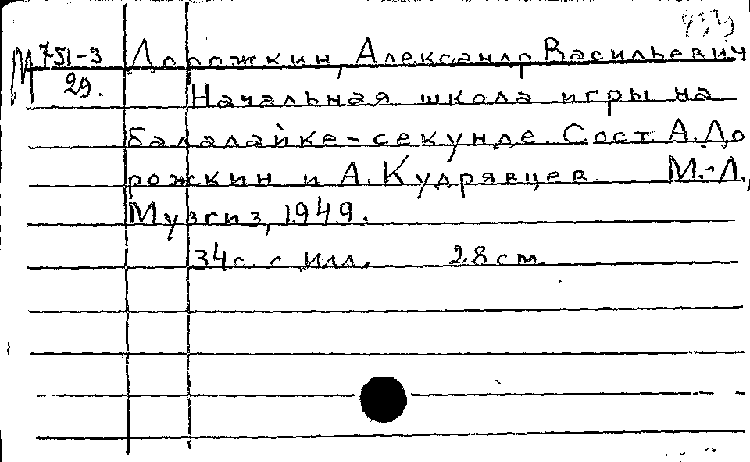 М 751-3 Дорожкин, Александр Васильевич
29.
Начальная школа игры на
балалайке-секунде. Сост. А. До
рожкин и А. Кудрявцев М.-Л.,
Музгиз, 1949.
34с. с илл. 28см